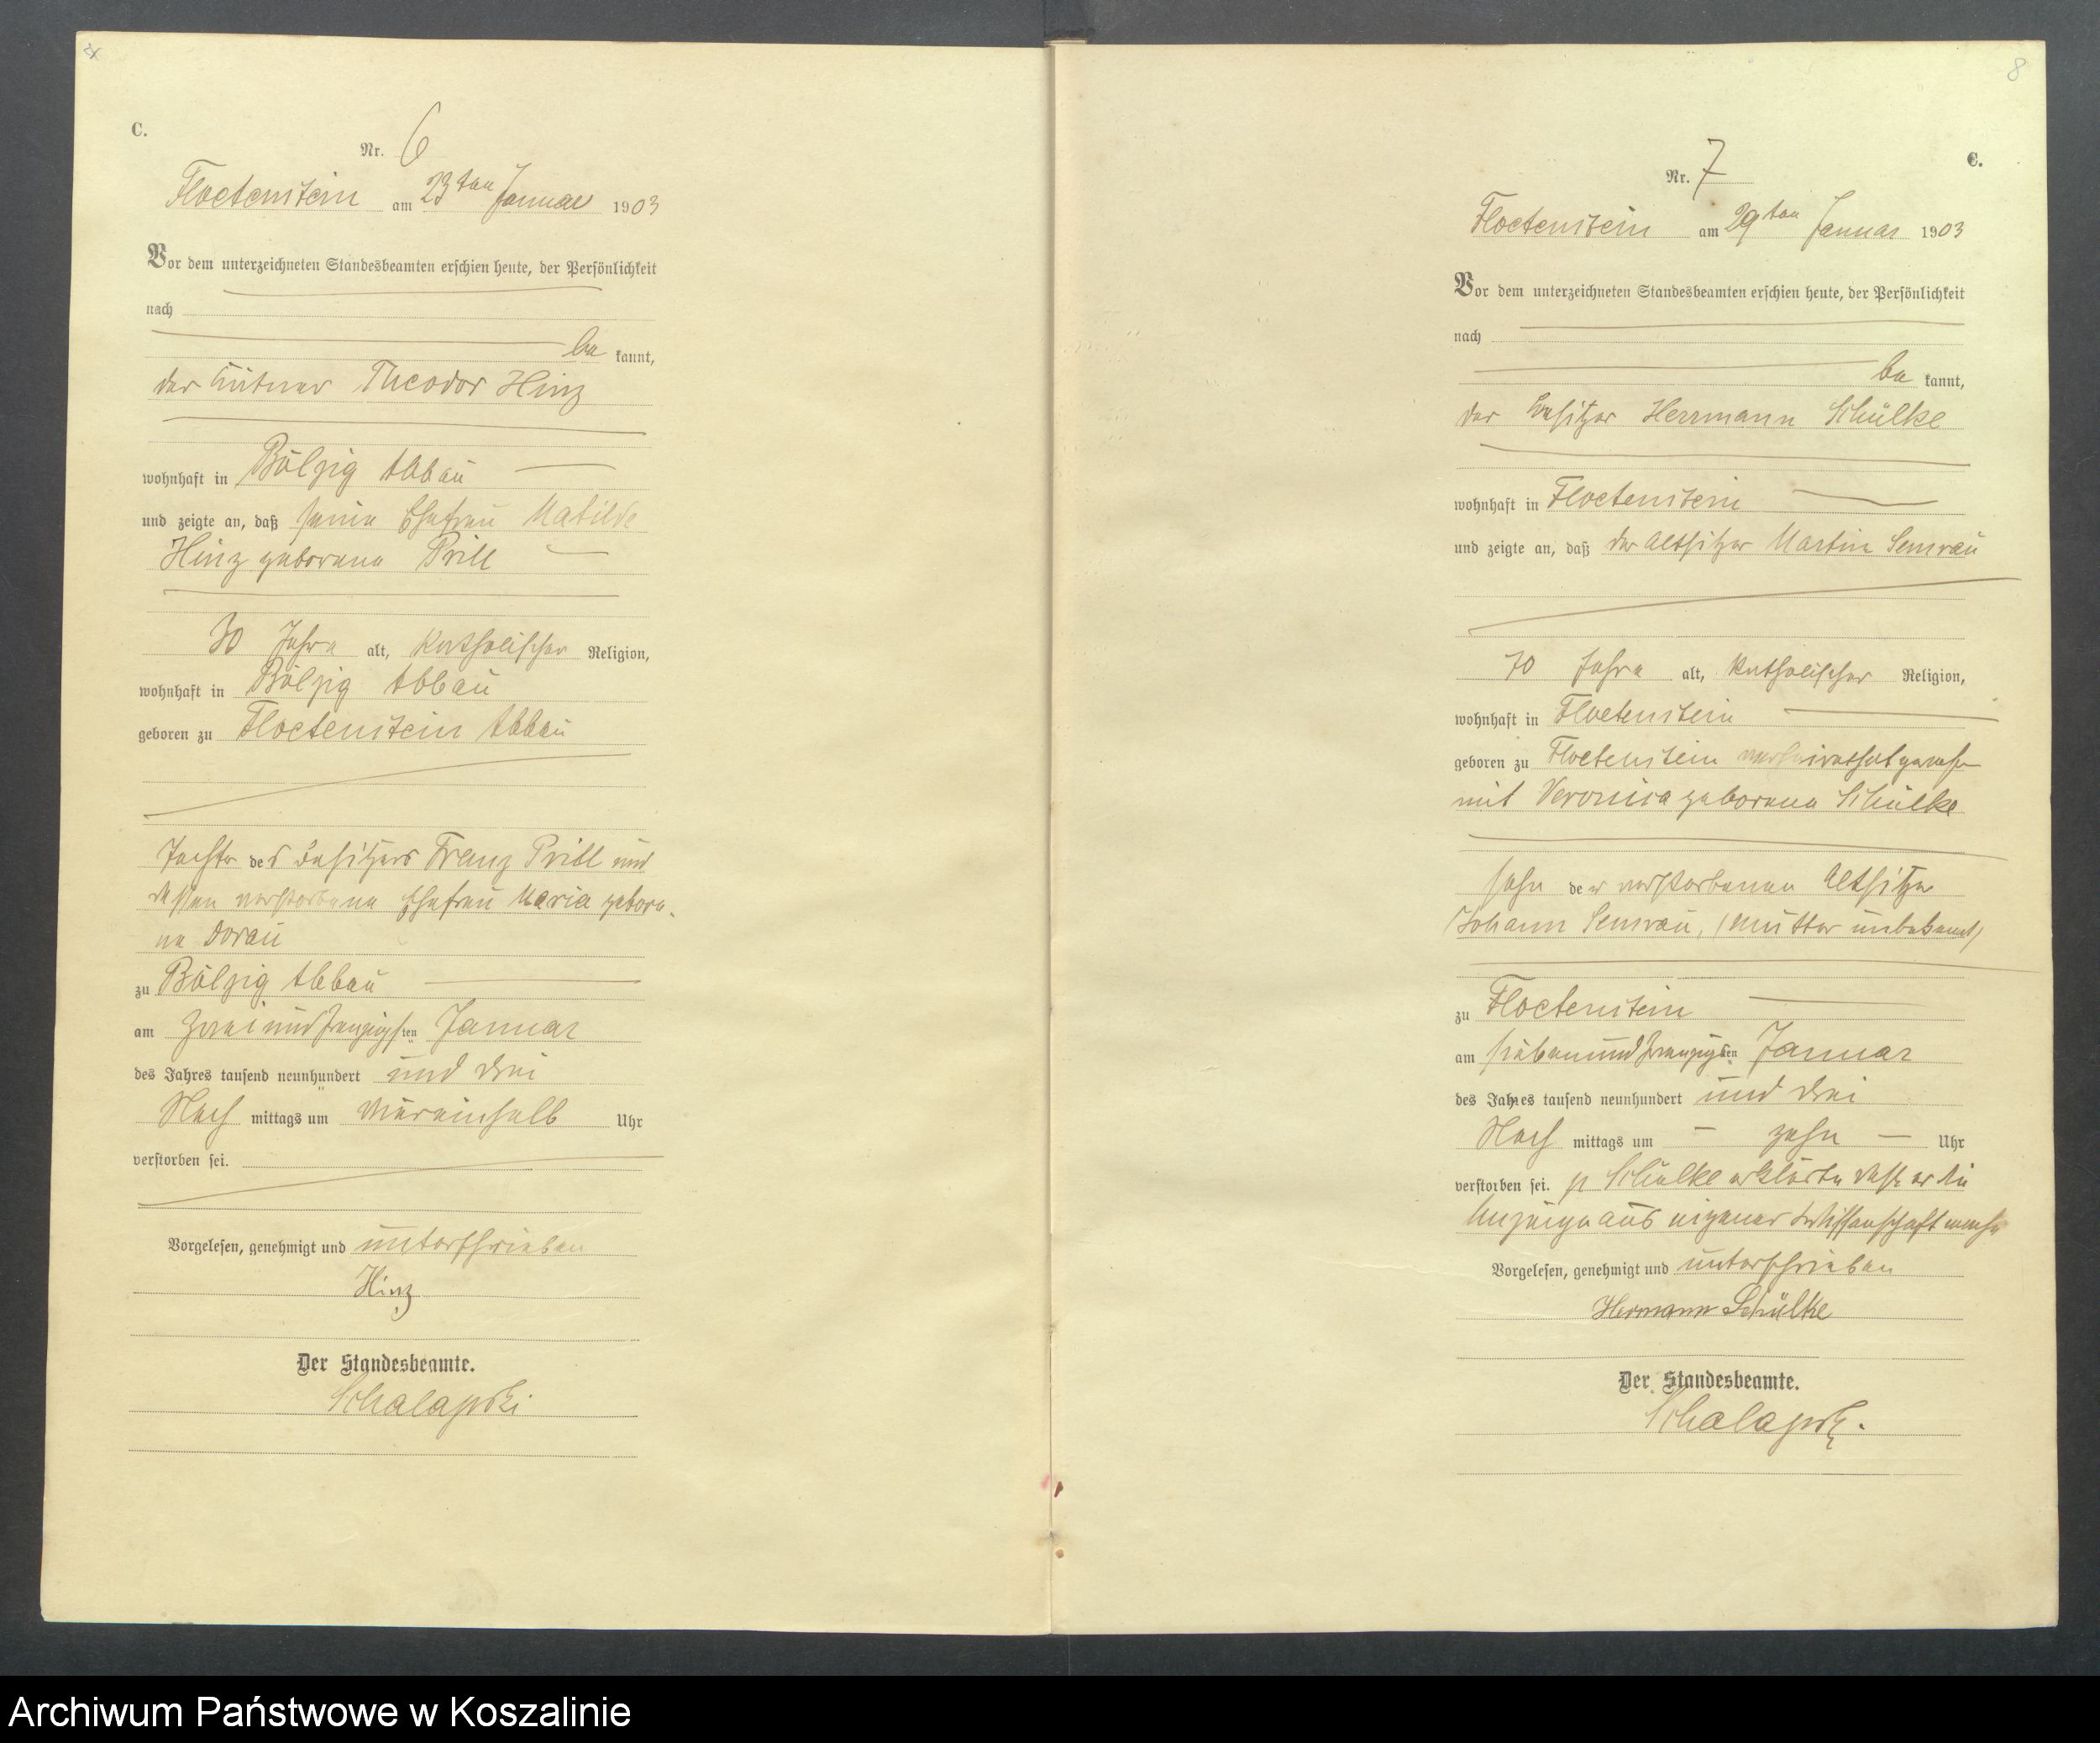 C.
Nr. 6
Floetenstein am 23ten Januar 1903
Vor dem unterzeichneten Standesbeamten erschien heute, der Persönlichkeit
nach
be kannt,
der Büdner Theodor Hinz
wohnhaft in Bölzig Abbau
und zeigte an, daß seine Ehefrau Matilde
Hinz geborene Prill
30 Jahre alt, katholischer Religion,
wohnhaft in Bölzig Abbau
geboren zu Floetenstein Abbau
Tochter des Besitzers Franz Prill und
dessen verstorbene Ehefrau Maria gebore-
ne Dorau
zu Bölzig Abbau
am zweiundzwanzigsten Januar
des Jahres tausend neunhundert und drei
Nach mittags um viereinhalb Uhr
verstorben sei.
Vorgelesen, genehmigt und unterschrieben
Hinz
Der Standesbeamte.
Schalapski
8
C.
Nr. 7
Floetenstein am 29ten Januar 1903
Vor dem unterzeichneten Standesbeamten erschien heute, der Persönlichkeit
nach
be kannt,
der Besitzer Herrmann Schülke
wohnhaft in Floetenstein
und zeigte an, daß der Altsitzer Martin Semrau
70 Jahre alt, katholischer Religion,
wohnhaft in Floetenstein
geboren zu Floetenstein verheirathet gewesen
mit Veronica geborene Schülke
Sohn der verstorbenen Altsitzer
Johann Semrau, (Mutter unbekannt)
zu Floetenstein
am siebenundzwanzigsten Januar
des Jahres tausend neunhundert und drei
Nach mittags um – zehn – Uhr
verstorben sei. p Schülke erklärte daß er die
Anzeige aus eigener Wissenschaft mache
Vorgelesen, genehmigt und unterschrieben
Hermann Schülke
Der Standesbeamte.
Schalapski.
Archiwum Państwowe w Koszalinie